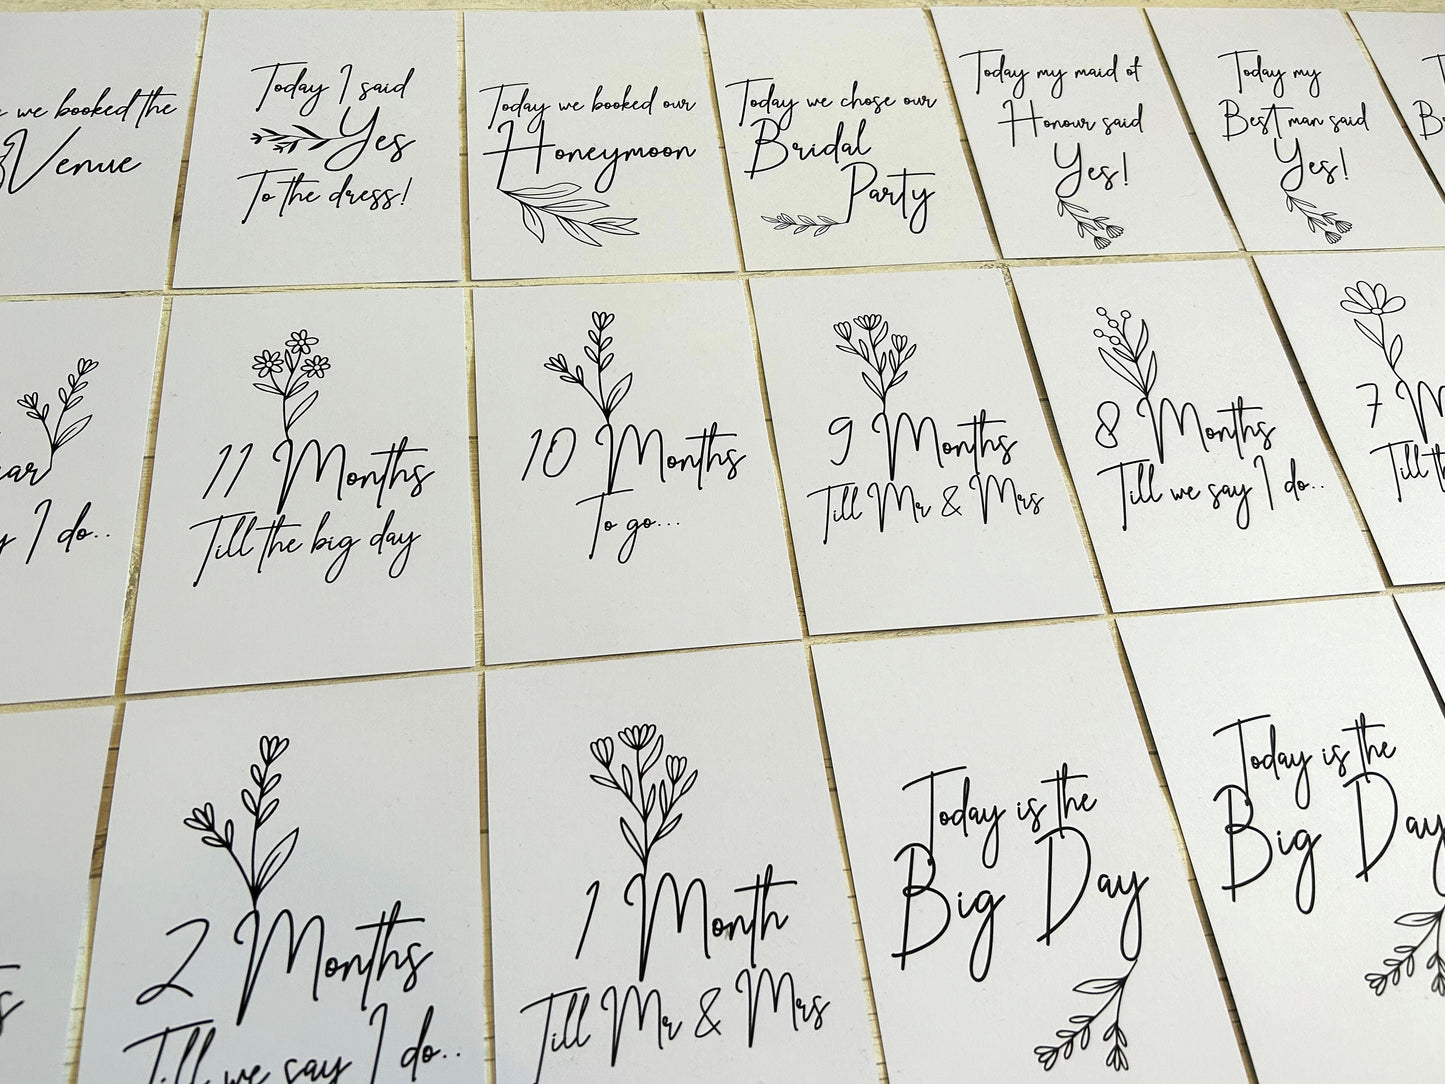 we booked the
Venue
Today I said
Yes
To the dress!
Today we booked our
Honeymoon
Today we chose our
Bridal
Party
Today my maid of
Honour said
Yes!
Today my
Best man said
Yes!
I do..
11 Months
Till the big day
10 Months
To go...
9 Months
Till Mr & Mrs
8 Months
Till we say I do..
7
Till
2 Months
Till we say I do..
1 Month
Till Mr & Mrs
Today is the
Big Day
Today is the
Big Day